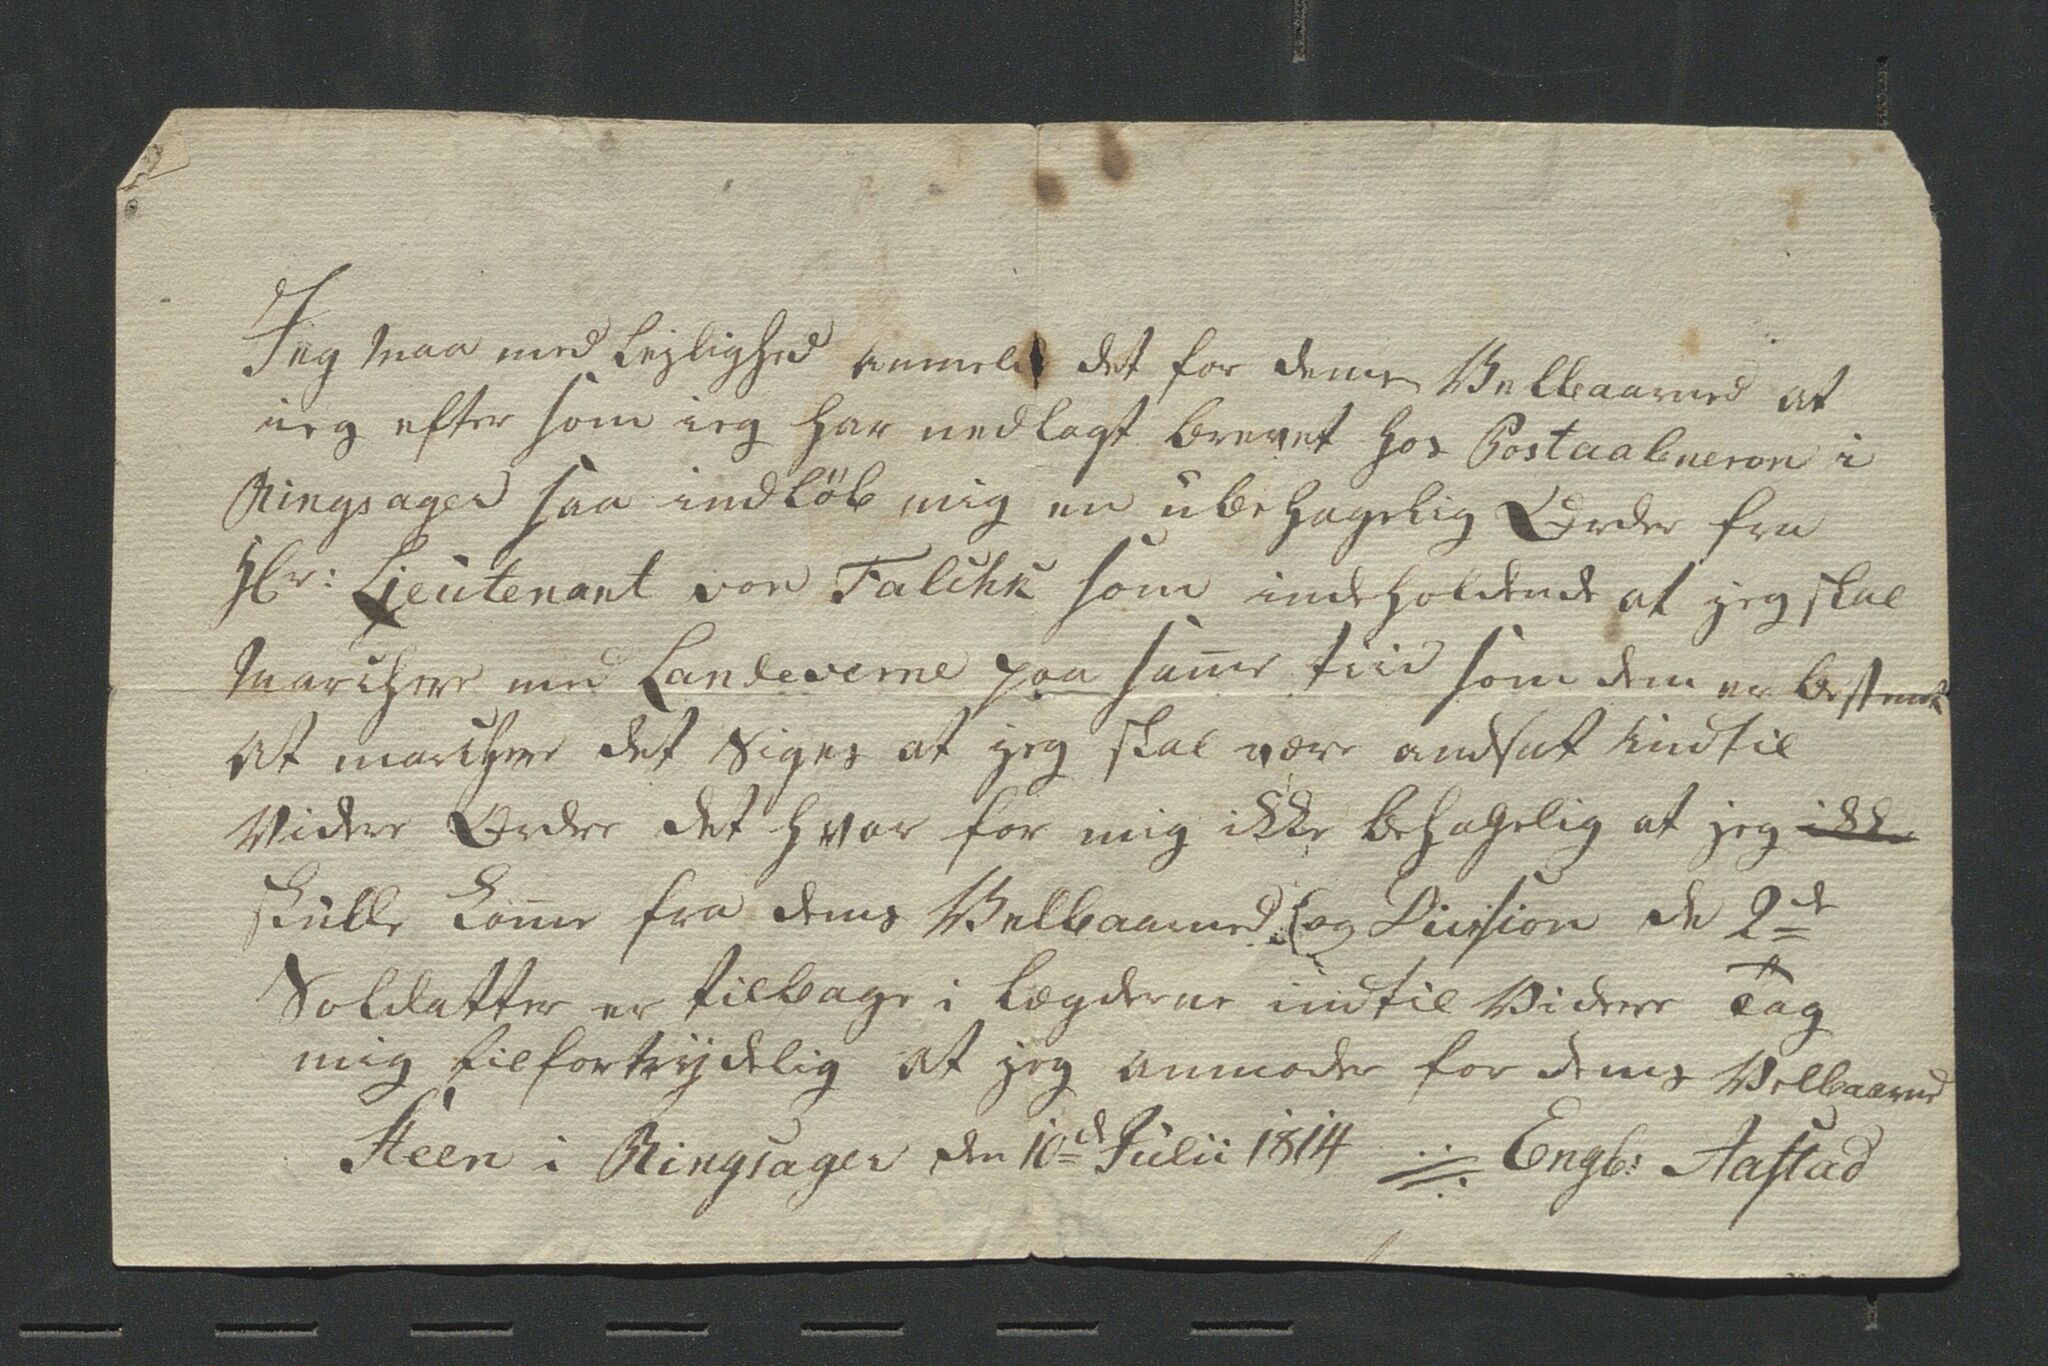 Jeg maa med Lejlighed anmelde det for dems Velbaarned at
ieg efter som ieg har nedlagt brevet hos Postaabneren i
Ringsager saa indløb mig en ubehagelig Order fra
Hr: Lieutenant von Falchk som indeholdende at jeg skal
Marchere med Landeverne paa same tiid som dem er bestemt
at marchere det siges at jeg skal være andsat indtil
Videre Ordre det hvor for mig ikke behagelig at jeg ikke
skulle kome fra dems Velbaarned og Division de 2de
Soldatter er tilbage i Lægderne indtil Videre Tag
mig til fortrydelig at jeg anmoder for dems Velbaarned
Steen i Ringsager den 10de Julii 1814 Engb: Aastad